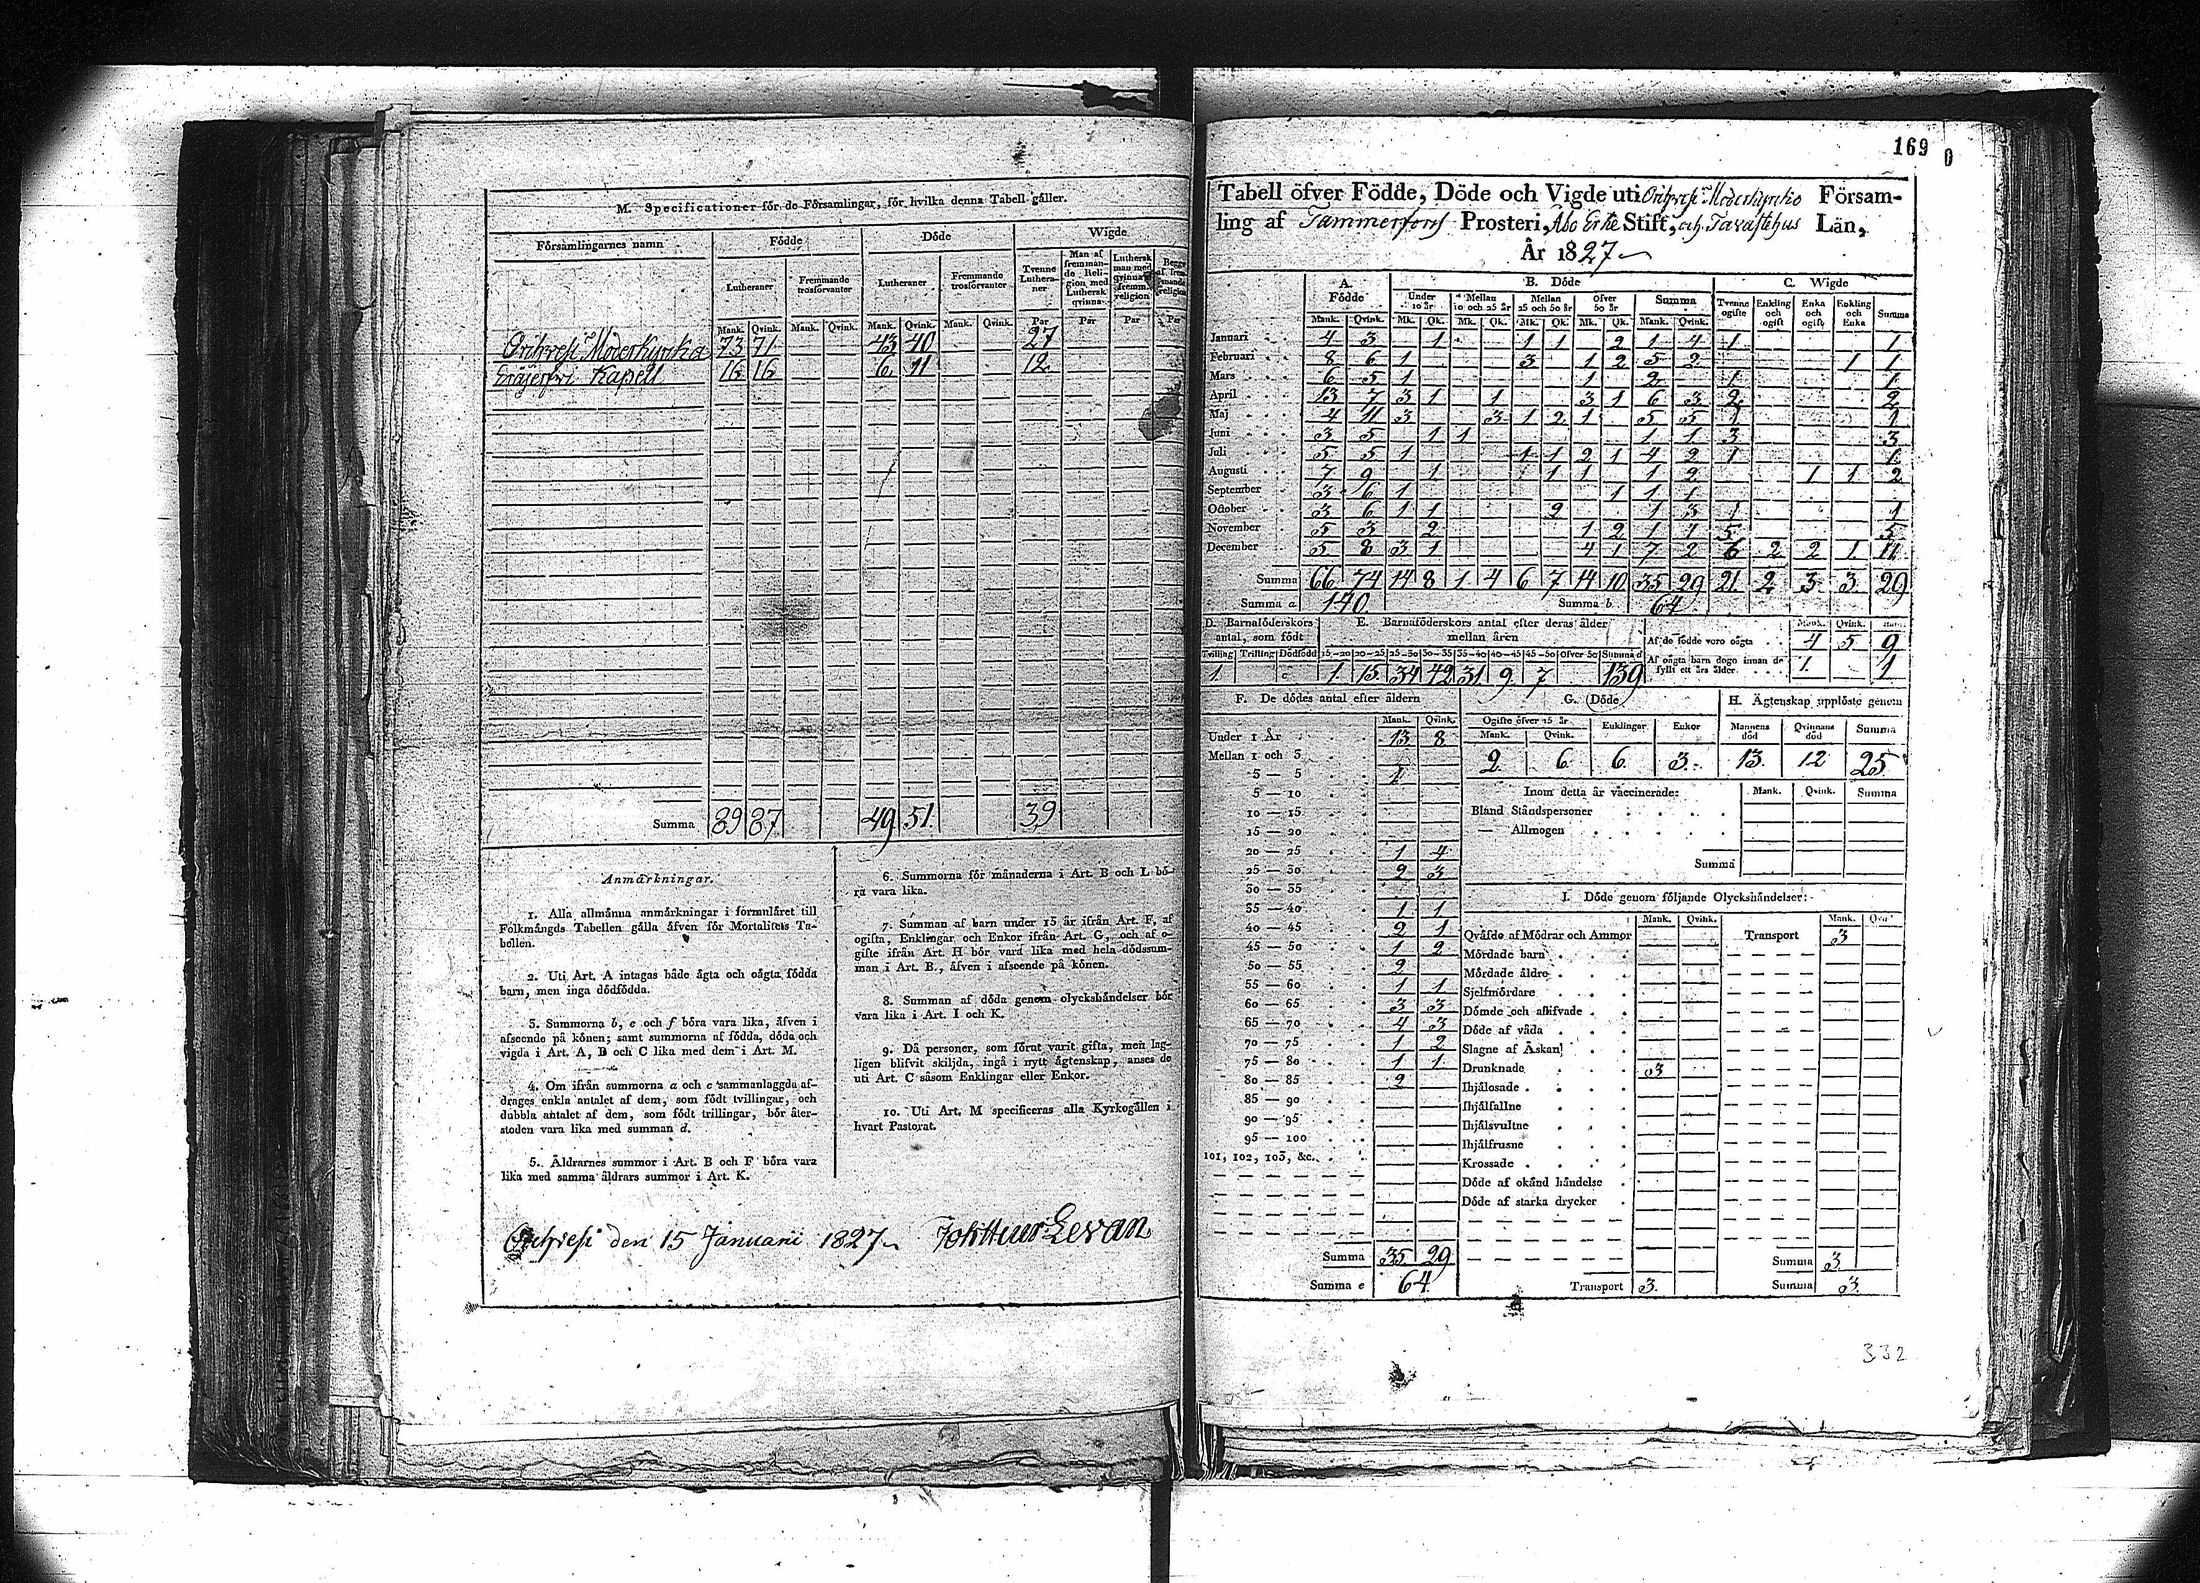 M. Specificationer för de Församlingar, för hvilka denna Tabell gäller.
Församlingarnes namn
Födde
Döde
Wigde
Lutheraner
Fremmande trosförvanter
Lutheraner
Fremmande trosförvanter
Tvenne Lutheraner
Man af fremmande Religion med Luthersk qvinna
Luthersk man med qvinna af fremm. religion
Mank. Qvink. Mank. Qvink. Mank. Qvink. Mank. Qvink. Par Par Par Par
Orihvesi Moderkyrka 73 71 43 40 27
Kapell 16 16 6 11 12
Summa 89 87 49 51 39
Anmärkningar.
1. Alla allmänna anmärkningar i formuläret till
Folkmängds Tabellen gälla äfven för Mortalitets Ta-
bellen.
2. Uti Art. A intagas både ägta och oägta födda
barn, men inga dödfödda.
3. Summorna b, e och f böra vara lika, äfven i
afseende på könen; samt summorna af födda, döda och
vigda i Art. A, B och C lika med dem i Art. M.
4. Om ifrån summorna a och c sammanlaggda af-
drages enkla antalet af dem, som födt tvillingar, och
dubbla antalet af dem, som födt trillingar, bör åter-
stoden vara lika med summan d.
5. Åldrarnes summor i Art. B och F böra vara
lika med samma åldrars summor i Art. K.
6. Summorna för månaderna i Art. B och L bö-
ra vara lika.
7. Summan af barn under 15 år ifrån Art. F, af
ogifta, Enklingar och Enkor ifrån Art. G, och af o-
gifte ifrån Art. H bör vara lika med hela dödssum-
man i Art. B., äfven i afseende på könen.
8. Summan af döda genom olyckshändelser bör
vara lika i Art. I och K.
9. Då personer, som förut varit gifta, men lag-
ligen blifvit skiljda, ingå i nytt ägtenskap, anses de
uti Art. C såsom Enklingar eller Enkor.
10. Uti Art. M specificeras alla Kyrkogällen i
hvart Pastorat.
Orihvesi den 15 Januarii 1827
169
Tabell öfver Födde, Döde och Vigde uti Orihvesi Moderkyrko Försam-
ling af Tammerfors Prosteri, Åbo Erke Stift, och Tavastehus Län,
År 1827
A. Födde
B. Döde
C. Wigde
Under 10 år
Mellan 10 och 25 år
Mellan 25 och 50 år
Öfver 50 år
Summa
Tvenne ogifte
Enkling och ogift
Enka och ogift
Enkling och Enka
Summa
Mank. Qvink. Mk. Qk. Mk. Qk. Mk. Qk. Mk. Qk. Mank. Qvink.
Januari 4 3 1 1 1 2 1 4 1 1
Februari 8 6 1 3 1 2 5 2 1 1
Mars 6 5 1 1 2 1 1
April 13 7 3 1 1 3 1 6 3 2 2
Maj 4 11 3 3 1 2 1 5 5 1 1
Juni 3 5 1 1 1 1 3 3
Juli 5 5 1 1 1 2 1 4 2 1 1
Augusti 7 9 1 1 1 1 2 1 1 2
September 3 6 1 1 1 1
October 3 6 1 1 2 1 3 1 1
November 5 3 2 1 2 1 4 5 5
December 5 8 3 1 4 1 7 2 6 2 2 1 11
Summa 66 74 14 8 1 4 6 7 14 10 35 29 21 2 3 3 29
Summa a 140 Summa b 64
D. Barnaföderskors antal, som födt
E. Barnaföderskors antal efter deras ålder mellan åren
Tvilling Trilling Dödfödd 15–20 20–25 25–30 30–35 35–40 40–45 45–50 öfver 50 Summa d
1 c 1 15 34 42 31 9 7 139
Mank. Qvink.
Af de födde voro oägta 4 5 9
Af oägta barn dogo innan de fyllt ett års ålder 1 1
F. De dödes antal efter åldern
Mank. Qvink.
Under 1 År 13 8
Mellan 1 och 3
5 — 10
10 — 15
15 — 20
20 — 25 1 4
25 — 30 2 3
30 — 35
35 — 40 1 1
40 — 45 2 1
45 — 50 1 2
50 — 55 2
55 — 60 1 1
60 — 65 3 3
65 — 70 4 3
70 — 75 1 2
75 — 80 1 1
80 — 85 2
85 — 90
90 — 95
95 — 100
101, 102, 103, &c.
Summa 35 29
Summa e 64
G. Döde
Ogifte öfver 15 år
Mank. Qvink. Enklingar Enkor
2 6 6 3
H. Ägtenskap upplöste genom
Mannens död Qvinnans död Summa
13 12 25
Inom detta år vaccinerade: Mank. Qvink. Summa
Bland Ståndspersoner
— Allmogen
Summa
I. Döde genom följande Olyckshändelser:
Mank. Qvink. Mank.
Qväfde af Mödrar och Ammor Transport 3
Mördade barn
Mördade äldre
Sjelfmördare
Dömde och aflifvade
Döde af våda
Slagne af Åskan
Drunknade 3
Ihjälosade
Ihjälfallne
Ihjälsvultne
Ihjälfrusne
Krossade
Döde af okänd händelse
Döde af starka drycker
Summa 3
Transport 3 Summa 3
332